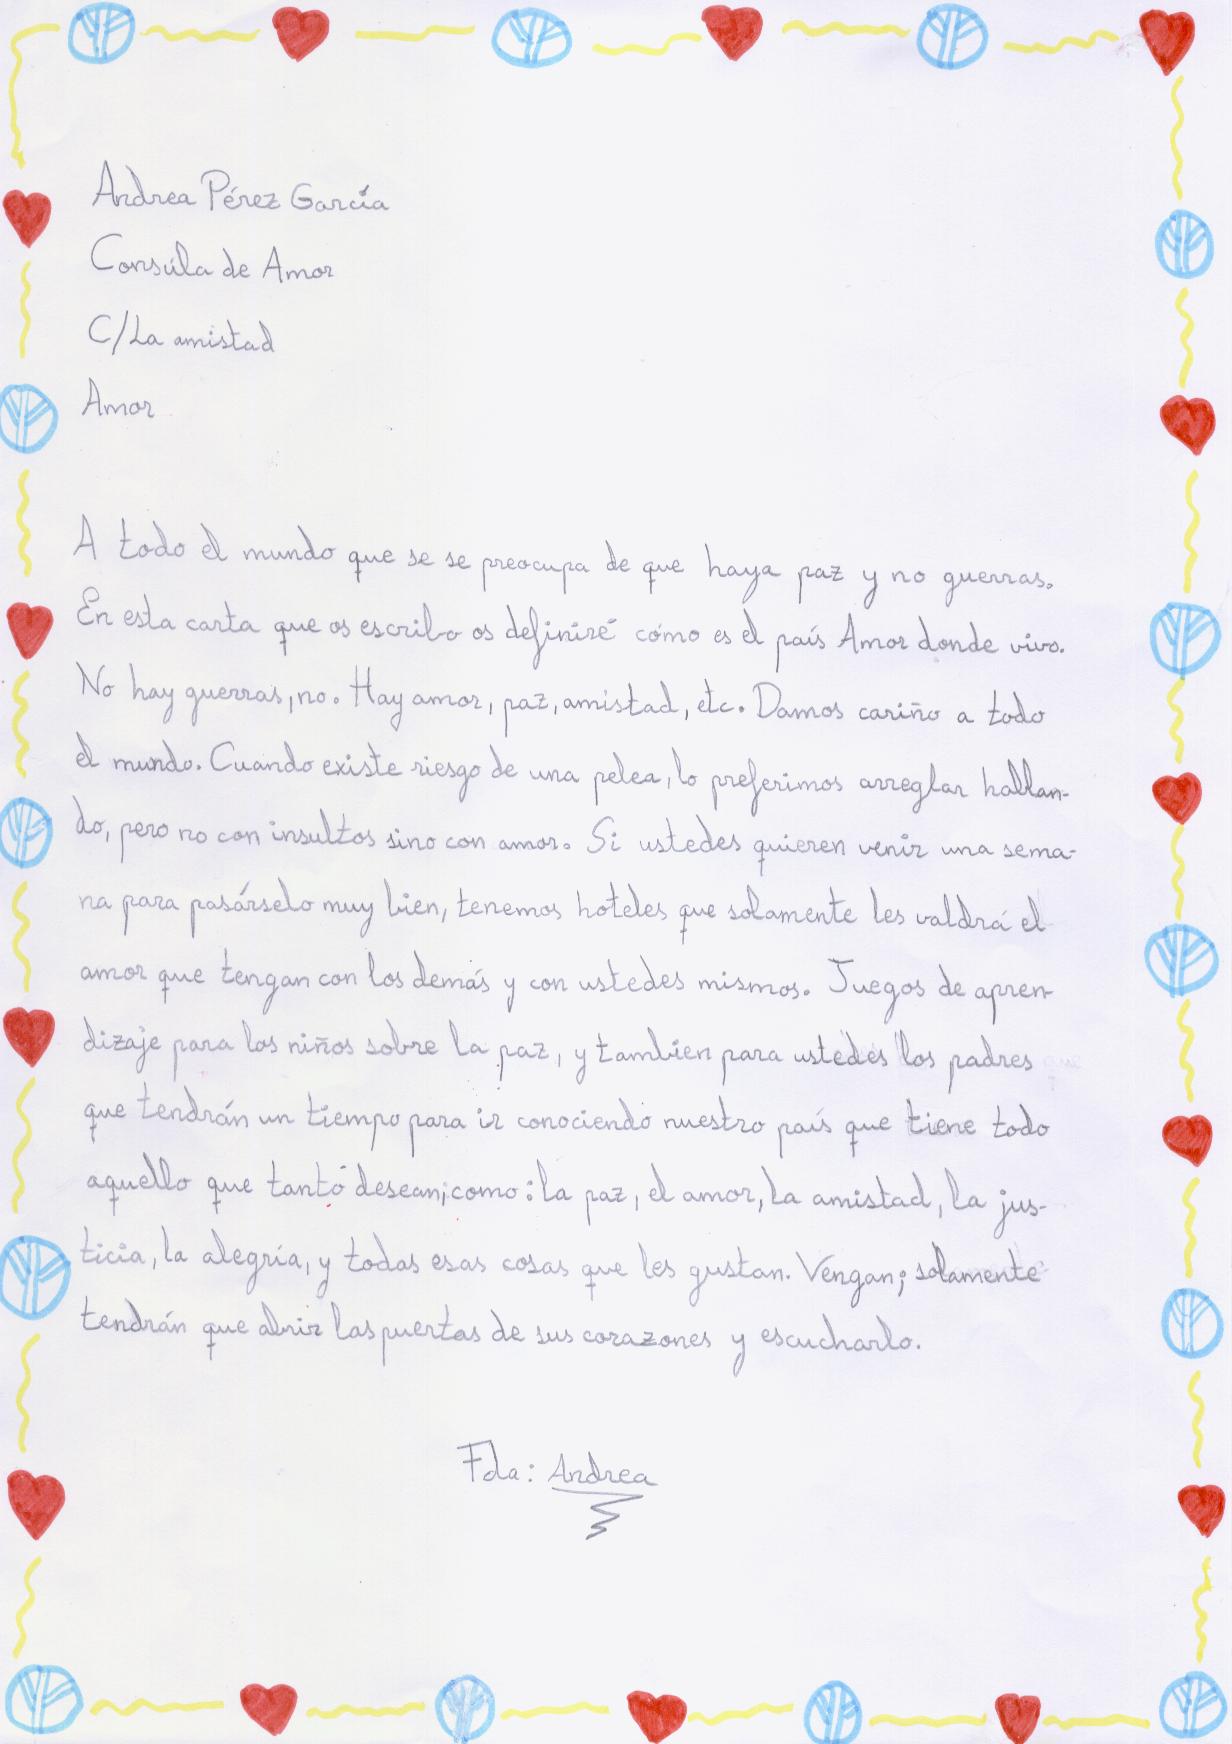 Andrea Pérez García
Consúla de Amor
C/La amistad
Amor
A todo el mundo que se se preocupa de que haya paz y no guerras.
En esta carta que os escribo os definiré cómo es el país Amor donde vivo.
No hay guerras, no. Hay amor, paz, amistad, etc. Damos cariño a todo
el mundo. Cuando existe riesgo de una pelea, lo preferimos arreglar hablan-
do, pero no con insultos sino con amor. Si ustedes quieren venir una sema-
na para pasárselo muy bien, tenemos hoteles que solamente les valdrá el
amor que tengan con los demás y con ustedes mismos. Juegos de apren-
dizaje para los niños sobre la paz, y tambien para ustedes los padres
que tendrán un tiempo para ir conociendo nuestro país que tiene todo
aquello que tantó desean; como: la paz, el amor, la amistad, la jus-
ticia, la alegría, y todas esas cosas que les gustan. Vengan; solamente
tendrán que abrir las puertas de sus corazones y escucharlo.
Fda: Andrea